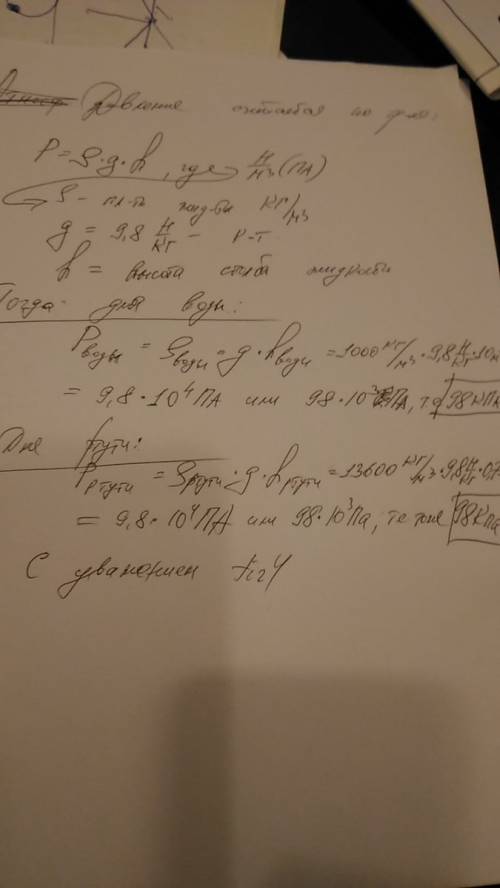 Давление считается по ф-ле:
P = ρ·g·h, где Н/м³ (ПА)
ρ - пл-ть жид-ти кг/м³
g = 9,8 Н/кг -
h = высота столба жидкости
Тогда для воды:
Pводы = ρводы·g·hводы = 1000 кг/м³·9,8 Н/кг·10м
= 9,8·10⁴ ПА или 98·10³ ПА, те 98кПа
Для ртути:
Pртути = ρртути·g·hртути = 13600 кг/м³·9,8 Н/кг
= 9,8·10⁴ ПА или 98·10³ Па, те тоже 98кПа
С уважением